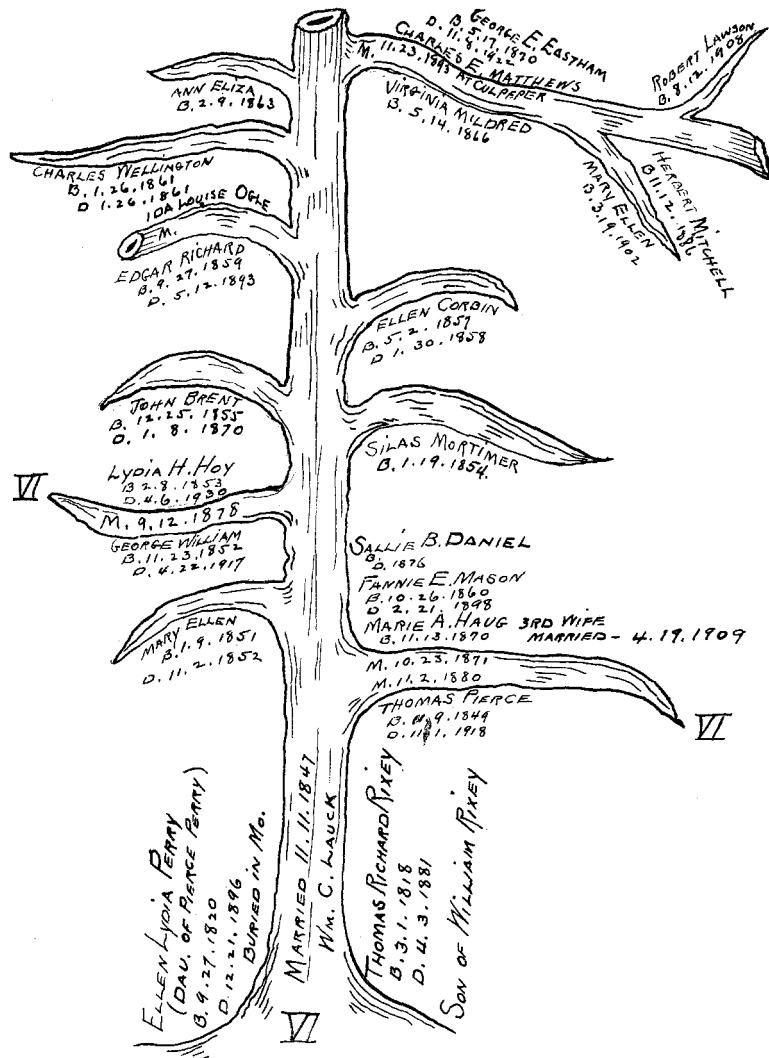 GEORGE E. EASTHAM
B. 5.17.1870
D. 11.8.1922
CHARLES E. MATTHEWS
M. 11.23.1893 AT CULPEPER
VIRGINIA MILDRED
B. 5.14.1866
ROBERT LAWSON
B. 8.12.1908
HERBERT MITCHELL
B 11.12.1896
MARY ELLEN
B. 3.19.1902
ANN ELIZA
B. 2.9.1863
CHARLES WELLINGTON
B. 1.26.1861
D 1.26.1861
IDA LOUISE OGLE
M.
EDGAR RICHARD
B. 9.27.1859
D. 5.12.1893
ELLEN CORBIN
B. 5.2.1857
D 1.30.1858
JOHN BRENT
B. 12.25.1855
D. 1.8.1870
SILAS MORTIMER
B. 1.19.1854.
LYDIA H. HOY
B 2.8.1853
D. 4.6.1930
VI
M. 9.12.1878
GEORGE WILLIAM
B. 11.23.1852
D. 4.22.1917
SALLIE B. DANIEL
B.
D. 1876
FANNIE E. MASON
B. 10.26.1860
D 2.21.1898
MARIE A. HAUG 3RD WIFE
B. 11.13.1870 MARRIED - 4.19.1909
MARY ELLEN
B. 1.9.1851
D. 11.2.1852
M. 10.23.1871
M. 11.2.1880
THOMAS PIERCE
B. 9.1849
D. 11.1.1918
VI
ELLEN LYDIA PERRY
(DAU. OF PIERCE PERRY)
B. 9.27.1820
D. 12.21.1896
BURIED IN MO.
MARRIED 11.11.1847
WM. C. LAUCK
THOMAS RICHARD RIXEY
B. 3.1.1818
D. 4.3.1881
SON OF WILLIAM RIXEY
VI